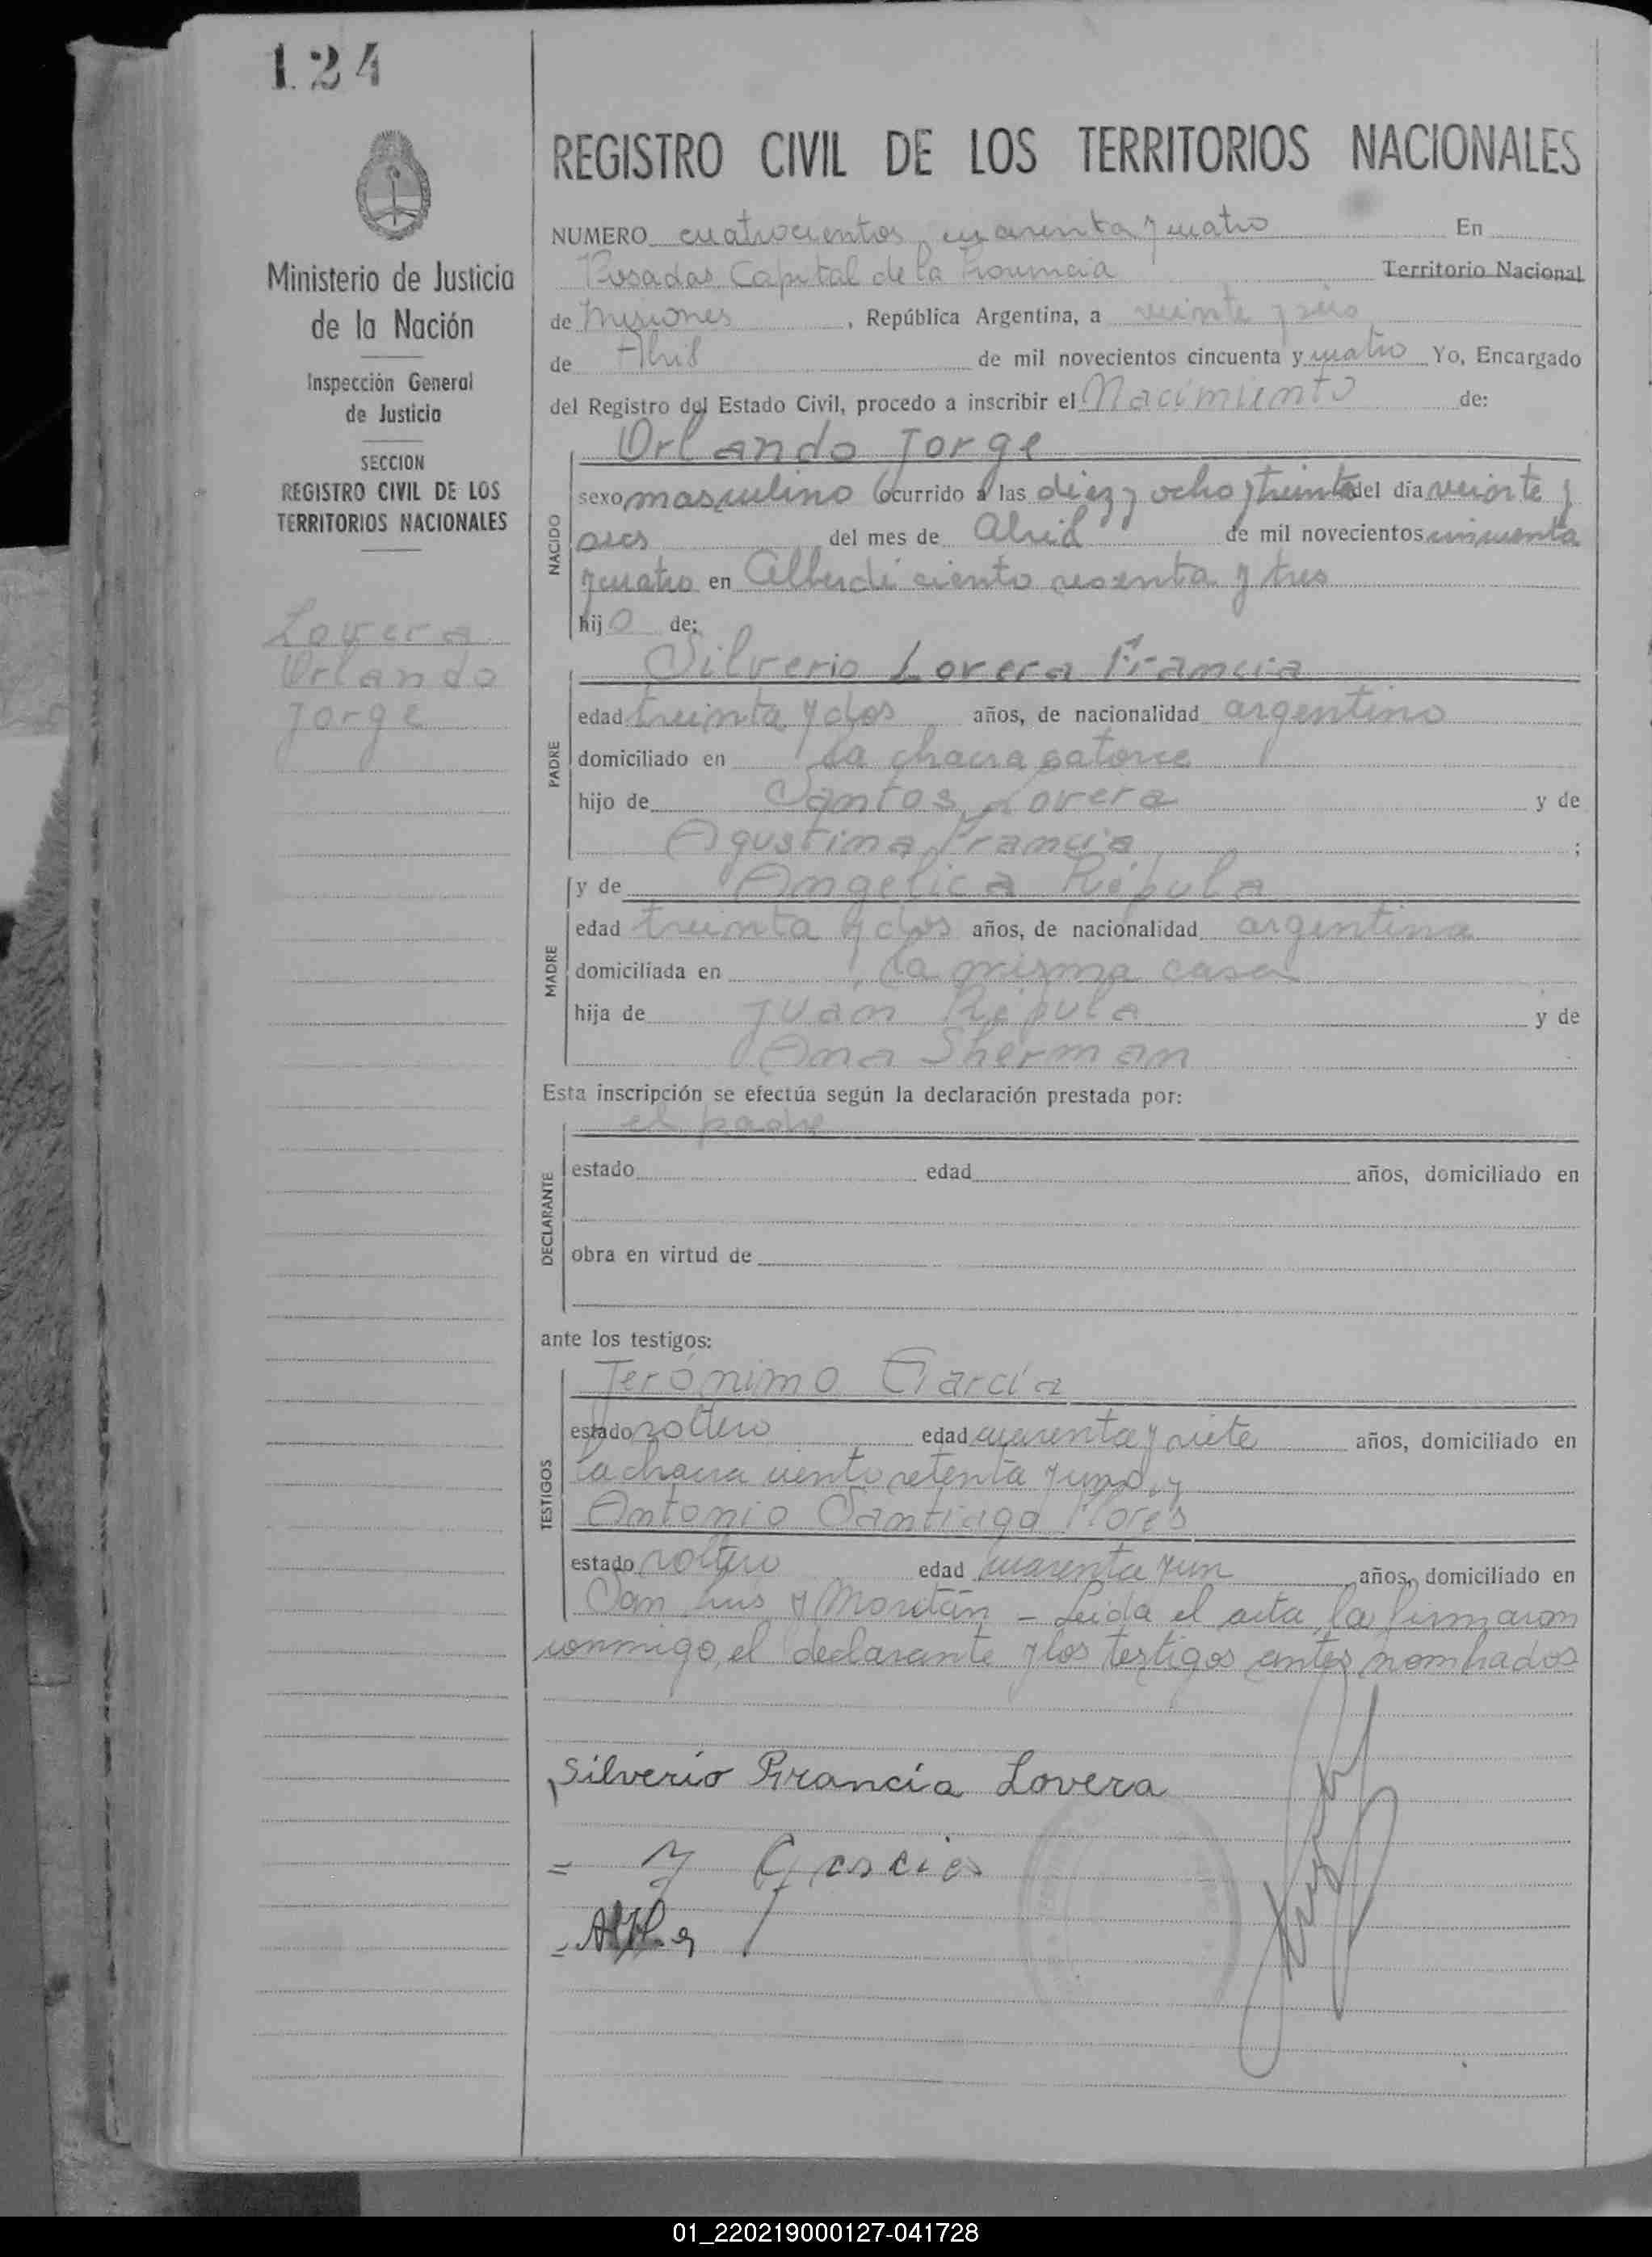 124
REGISTRO CIVIL DE LOS TERRITORIOS NACIONALES
Ministerio de Justicia
de la Nación
Inspección General
de Justicia
SECCION
REGISTRO CIVIL DE LOS
TERRITORIOS NACIONALES
Lovera
Orlando
Jorge
NUMERO cuatrocientos cuarenta y cuatro En
Posadas Capital de la Provincia Territorio Nacional
de Misiones, República Argentina, a veinte y seis
de Abril de mil novecientos cincuenta y cuatro Yo, Encargado
del Registro del Estado Civil, procedo a inscribir el Nacimiento de:
NACIDO
Orlando Jorge
sexo masculino ocurrido a las diez y ocho y treinta del día veinte y
seis del mes de Abril de mil novecientos cincuenta
y cuatro en Alberdi ciento sesenta y tres
hijo de:
PADRE
Silverio Lovera Francia
edad treinta y dos años, de nacionalidad argentino
domiciliado en la chacra catorce
hijo de Santos Lovera y de
Agustina Francia ;
MADRE
y de Angelica Répula
edad treinta y dos años, de nacionalidad argentina
domiciliada en la misma casa
hija de Juan Répula y de
Ana Sherman
Esta inscripción se efectúa según la declaración prestada por:
DECLARANTE
el padre
estado edad años, domiciliado en
obra en virtud de
ante los testigos:
TESTIGOS
Jerónimo García
estado soltero edad cuarenta y siete años, domiciliado en
la chacra ciento setenta y uno, y
Antonio Santiago Flores
estado soltero edad cuarenta y un años, domiciliado en
San Luis y Moritán - Leida el acta, la firmaron
conmigo, el declarante y los testigos antes nombrados
Silverio Francia Lovera
= J Garcia
01_220219000127-041728